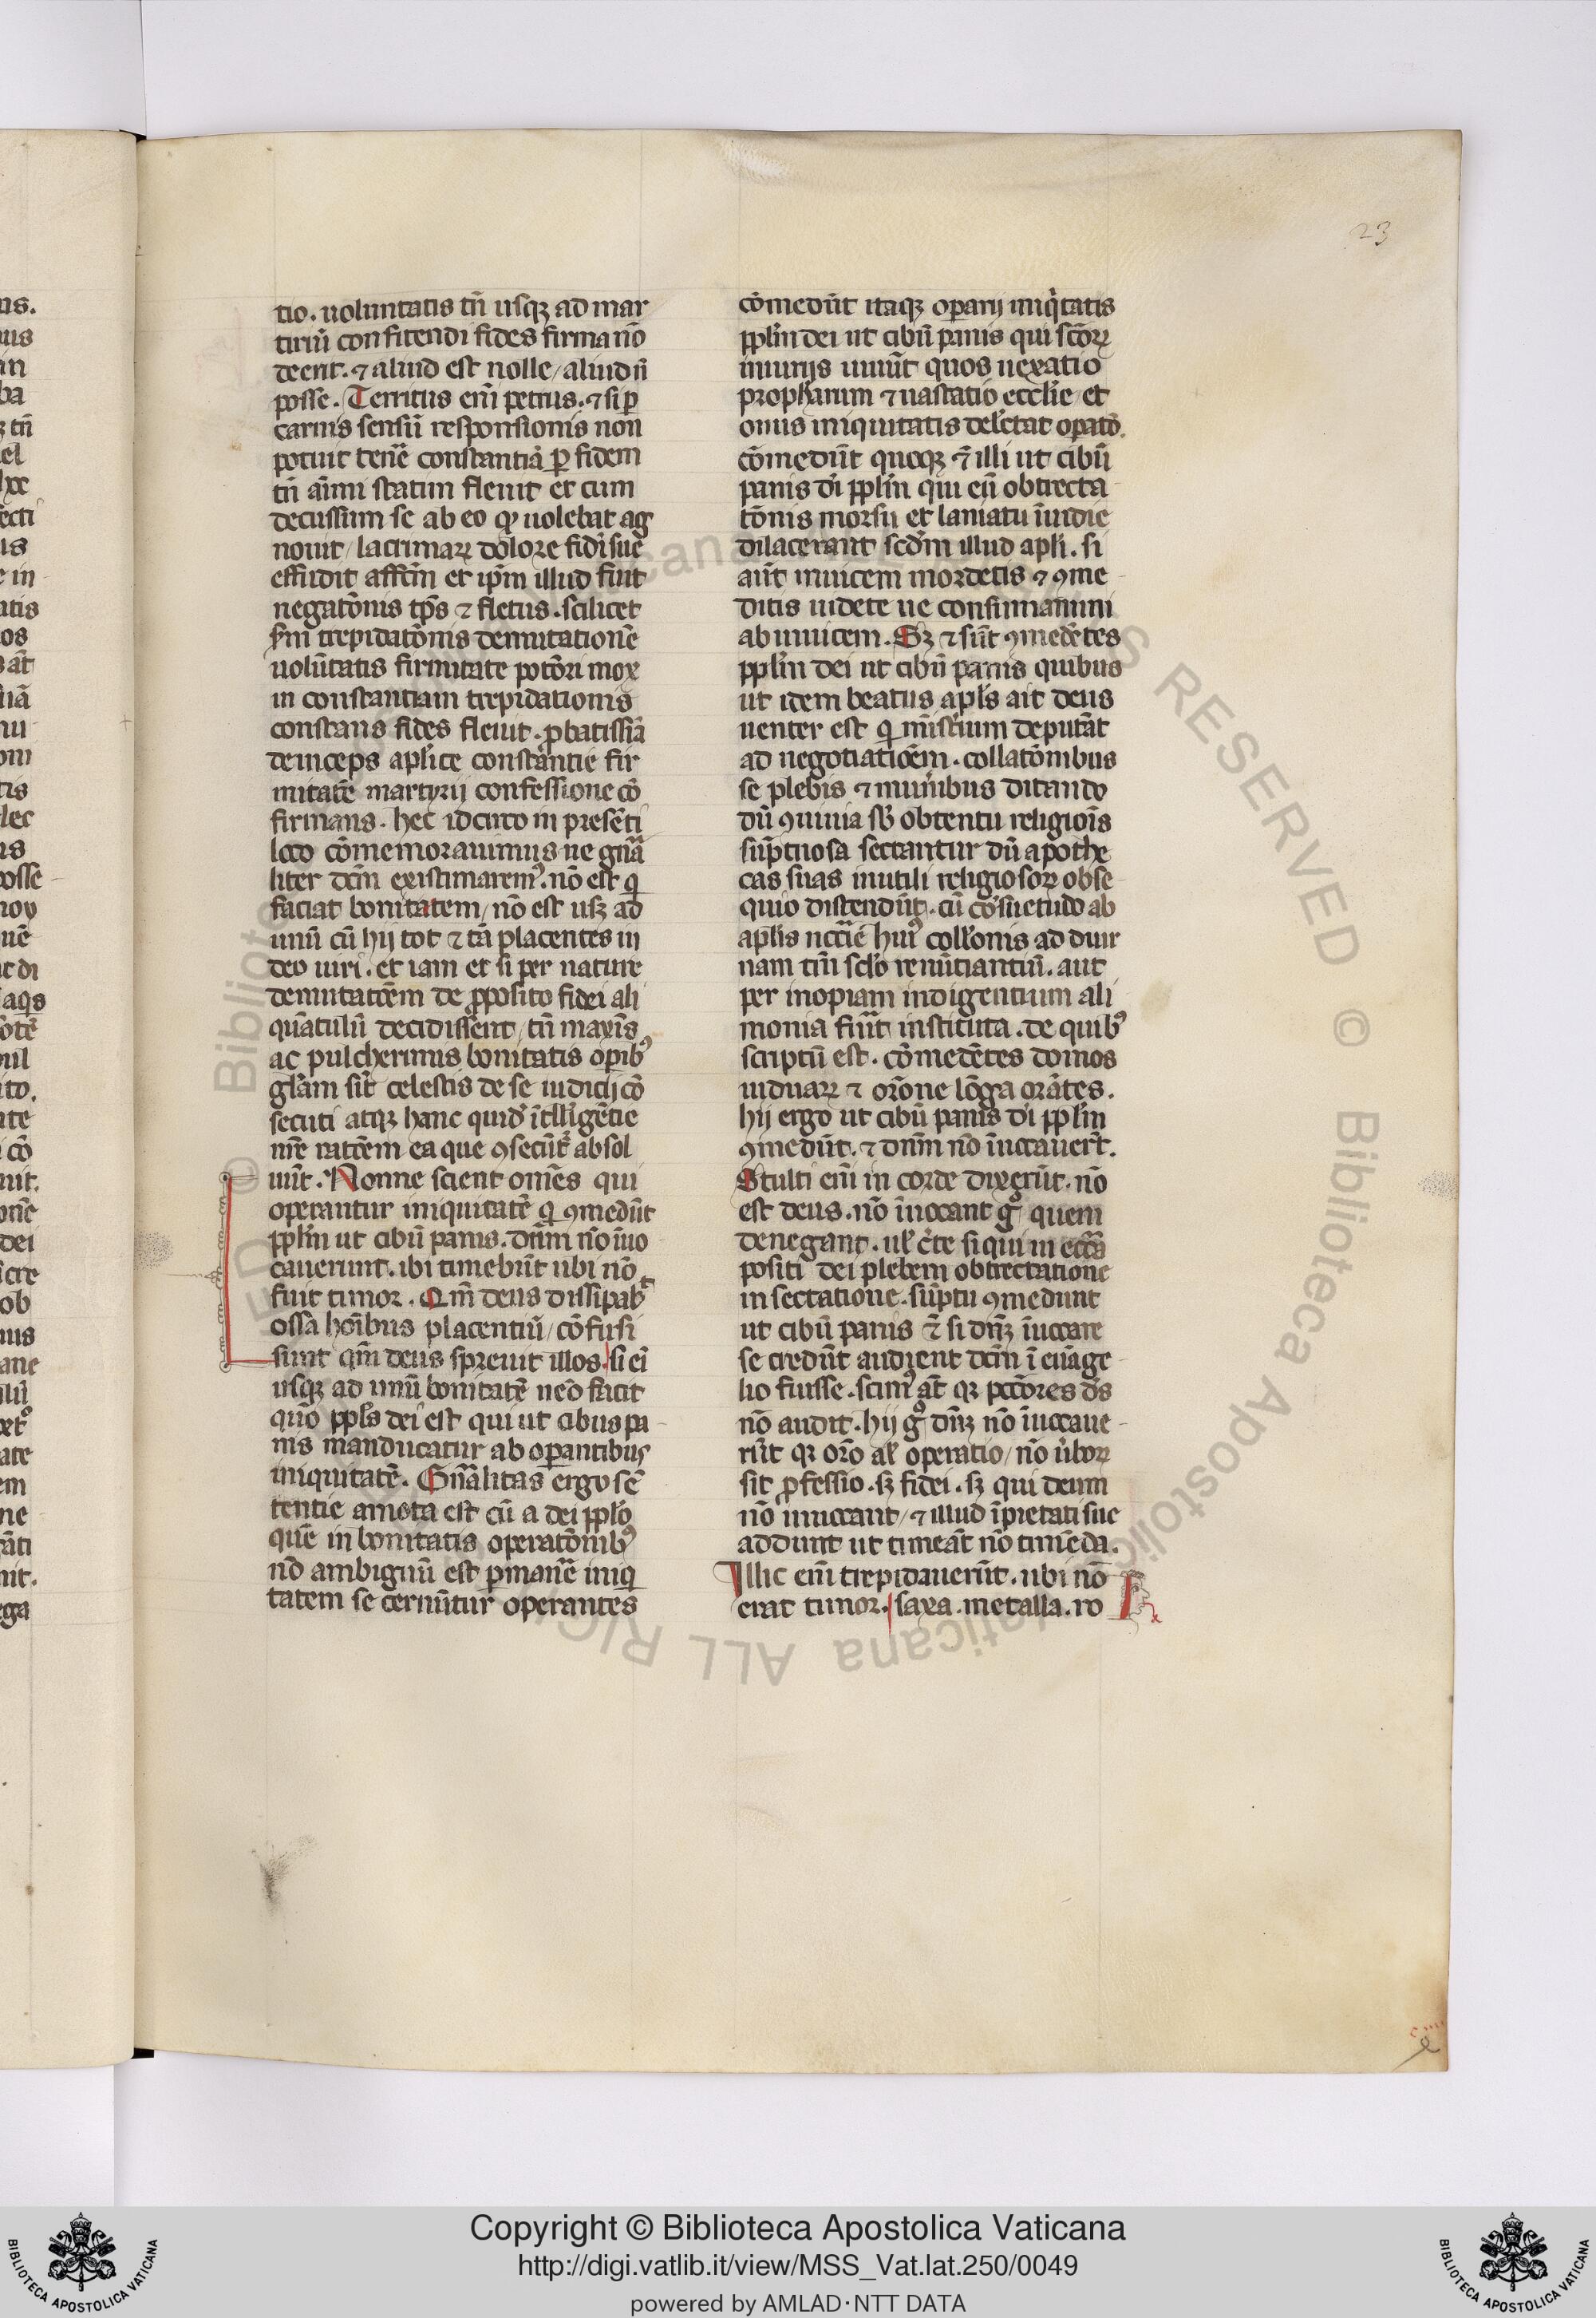 23
tio. uoluntatis tn̄ usqꝫ ad mar
tiriū confitendi fides firma nō
deerit. ⁊ aliud est nolle / aliud n̄
posse. Territus eni petrus. ⁊ si ꝑ
carnis sensū responsionis non
potuit tenē constantiā ꝑ fidem
tn̄ aīmi statim fleuit et cum
decussum se ab eo qͥ uolebat ag
nouit / lacrimaꝝ dolore fidī sue
effudit affcm̄ et ip̄m illud fuit
negatōnis tp̄s ⁊ fletus. scilicet
trepidatōnis demutationē
uolūtatis firmitate potōri mox
in constantiam trepidationis
constans fides fleuit. ꝓbatissīa
deinceps apl̄ice constantie fir
mitatē martyrij confessione cō
firmans. hec idcirco in presēti
loco cōmemorauimus ne gn̄a
liter dcm̄ existimaremꝰ. nō est qͥ
faciat bonitatem / nō est usꝫ ad
unū cū hij tot ⁊ tā placentes in
deo uiri. et iam et si per nature
demutatōem de ꝓposito fidei ali
quātulū decidissent / tn̄ maxīs
ac pulcherimis bonitatis opībꝰ
gl̄am sit̄ celestis de se iudicij cō
secuti atqꝫ hanc quid ītll̄igētie
nr̄e ratōem ea que ꝯsecūt᷑ absol
uūt. Nonne scient omēs qui
operantur iniquitatē qͥ ꝯmedūt
pplm̄ ut cibū panis. dn̄m nō īuo
cauerunt. ibi timebūt ubi nō
fuit timor. Qm̄ deus dissipabͭ
ossa hoībus placentiū / cōfusi
sunt qm̄ deus spreuit illos. si eī
usqꝫ ad unū bonitatē nēo facit
quō ppl̄s dei est qui ut cibus pa
nis manducatur ab oꝑantibus
iniquitatē. Gn̄alitas ergo sē
tentie amota est cū a dei ppl̄o
quē in bonitatis operatōnibꝰ
nō ambiguū est ꝑmanē iniqͥ
tatem se cernūtur operantes
cōmedūt itaqꝫ oꝑarij iniqͥtatis
pplm̄ dei ut cibū panis qui scōꝝ
iniurijs uiuūt quos uexatio
prophārum ⁊ uastatio eccl̄ie / et
omis iniquitatis delectat oꝑatō.
cōmedūt quoqꝫ ⁊ illi ut cibū
panis dī pplm̄ qui eū obtrecta
tōnis morsu et laniatu īuidie
dilacerant scdm̄ illud apl̄i. si
aūt inuicem mordetis ⁊ ꝯme
ditis uidete ne consumamini
ab inuicem. Sꝫ ⁊ sūt ꝯmedētes
pplm̄ dei ut cibū panis quibus
ut idem beatus apl̄s ait deus
uenter est qͥ mīstium deputāt
ad negotiatiōem. collatōnibus
se plebis ⁊ munībus ditando
dū ꝯuiuia sb̄ obtentu religioīs
sūptuosa sectantur dū apothe
cas suas inutili religiosoꝝ obse
quio distendūt. cū cōsuetudo ab
apl̄is nccīe huiꝰ coll̄onis ad diuī
nam tm̄ scl̄o renūtiantiū. aut
per inopiam indigentium ali
monia fiūt instituta. de quibꝰ
scriptū est. cōmedētes domos
uiduaꝝ ⁊ orōne lōga orātes.
hij ergo ut cibū panis dī pplm̄
ꝯmedūt. ⁊ dnm̄ nō īuocauert̄.
Stulti eni in corde dixerūt. nō
est deus. nō īuocant gͦ quem
denegant. ul̄ cte si qui in eccl̄a
positi dei plebem obtrectatione
insectatione. sūptu ꝯmedunt
ut cibū panis ⁊ si dnꝫ īuocare
se credūt audient dcm̄ ī euāge
lio fuisse. scimꝰ at̄ qꝛ pccōres ds̄
nō audit. hij gͦ dnꝫ nō īuocaue
rūt qꝛ orō al̄ operatio / nō ūboꝝ
sit ꝓfessio. sꝫ fidei. sꝫ qui deum
nō inuocant / ⁊ illud īpietati sue
addunt ut timeāt nō timēda.
Illic eni trepidauerūt. ubi nō
erat timor. saxa. metalla. ro
Copyright © Biblioteca Apostolica Vaticana
http://digi.vatlib.it/view/MSS_Vat.lat.250/0049
powered by AMLAD·NTT DATA
BIBLIOTECA APOSTOLICA VATICANA
BIBLIOTECA APOSTOLICA VATICANA